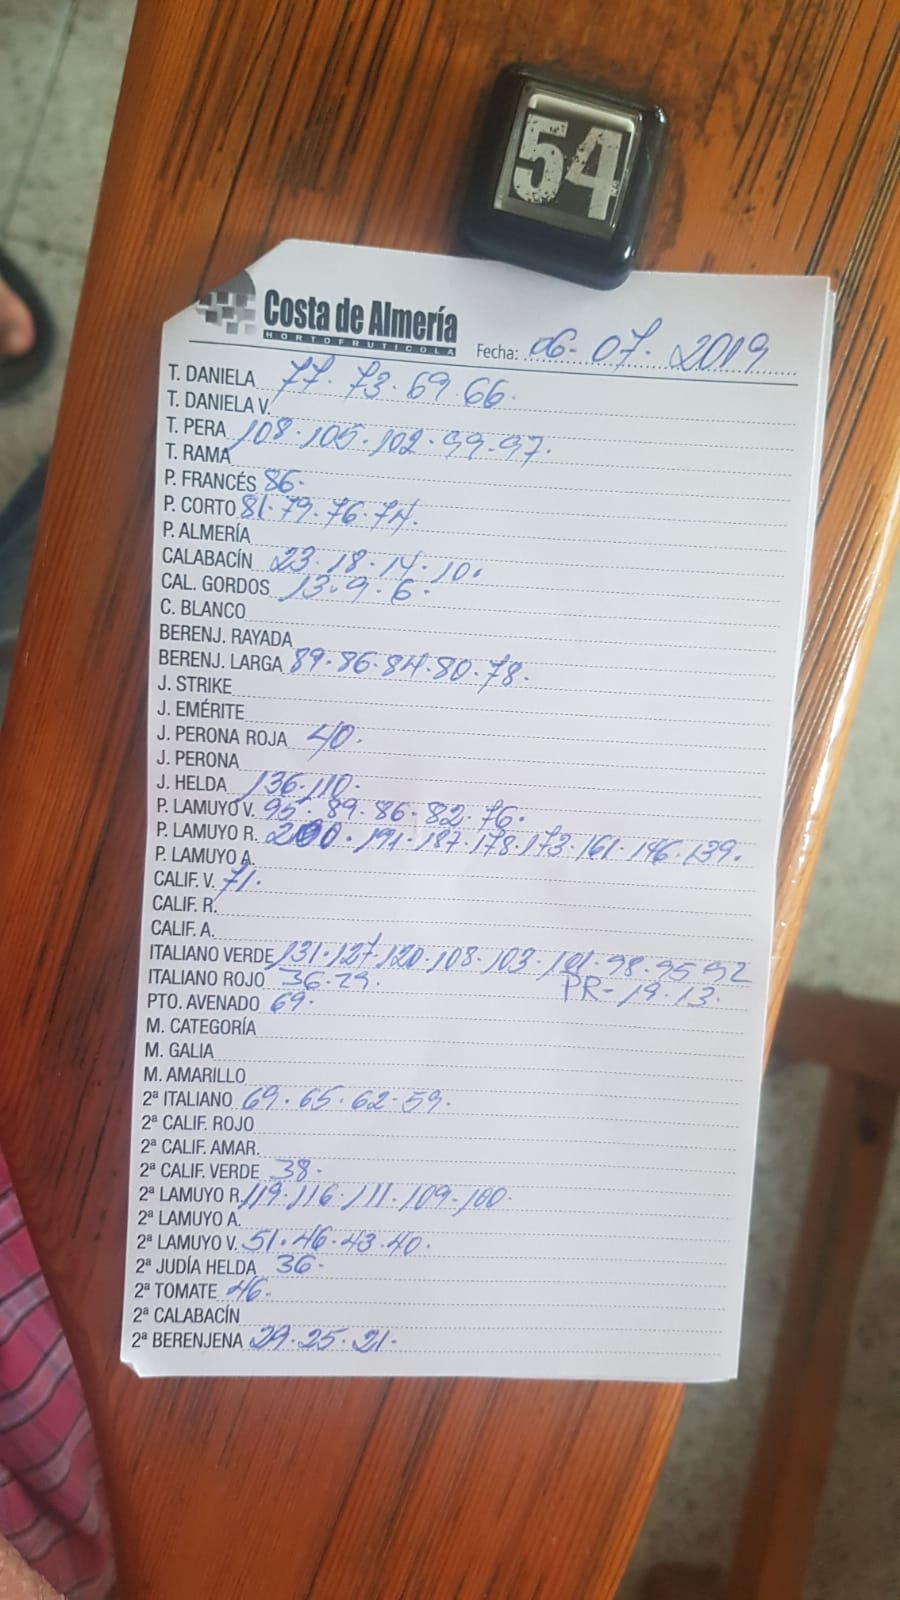 54
Costa de Almería
HORTOFRUTICOLA
Fecha: 06-07-2019
T. DANIELA 77. 73. 69. 66.
T. DANIELA V.
T. PERA 108. 105. 102. 99. 97.
T. RAMA
P. FRANCÉS 86.
P. CORTO 81. 79. 76. 74.
P. ALMERÍA
CALABACÍN 23. 18. 14. 10.
CAL. GORDOS 13. 9. 6.
C. BLANCO
BERENJ. RAYADA
BERENJ. LARGA 89. 86. 84. 80. 78.
J. STRIKE
J. EMÉRITE
J. PERONA ROJA 40.
J. PERONA
J. HELDA 136. 110.
P. LAMUYO V. 95. 89. 86. 82. 76.
P. LAMUYO R. 200. 191. 187. 178. 173. 161. 146. 139.
P. LAMUYO A.
CALIF. V. 71.
CALIF. R.
CALIF. A.
ITALIANO VERDE 131. 127. 120. 108. 103. 101. 98. 95 92
ITALIANO ROJO 36. 29. PR- 19. 13.
PTO. AVENADO 69.
M. CATEGORÍA
M. GALIA
M. AMARILLO
2ª ITALIANO 69. 65. 62. 59.
2ª CALIF. ROJO
2ª CALIF. AMAR.
2ª CALIF. VERDE 38.
2ª LAMUYO R. 119. 116. 111. 109. 100.
2ª LAMUYO A.
2ª LAMUYO V. 51. 46. 43. 40.
2ª JUDÍA HELDA 36.
2ª TOMATE 46.
2ª CALABACÍN
2ª BERENJENA 29. 25. 21.